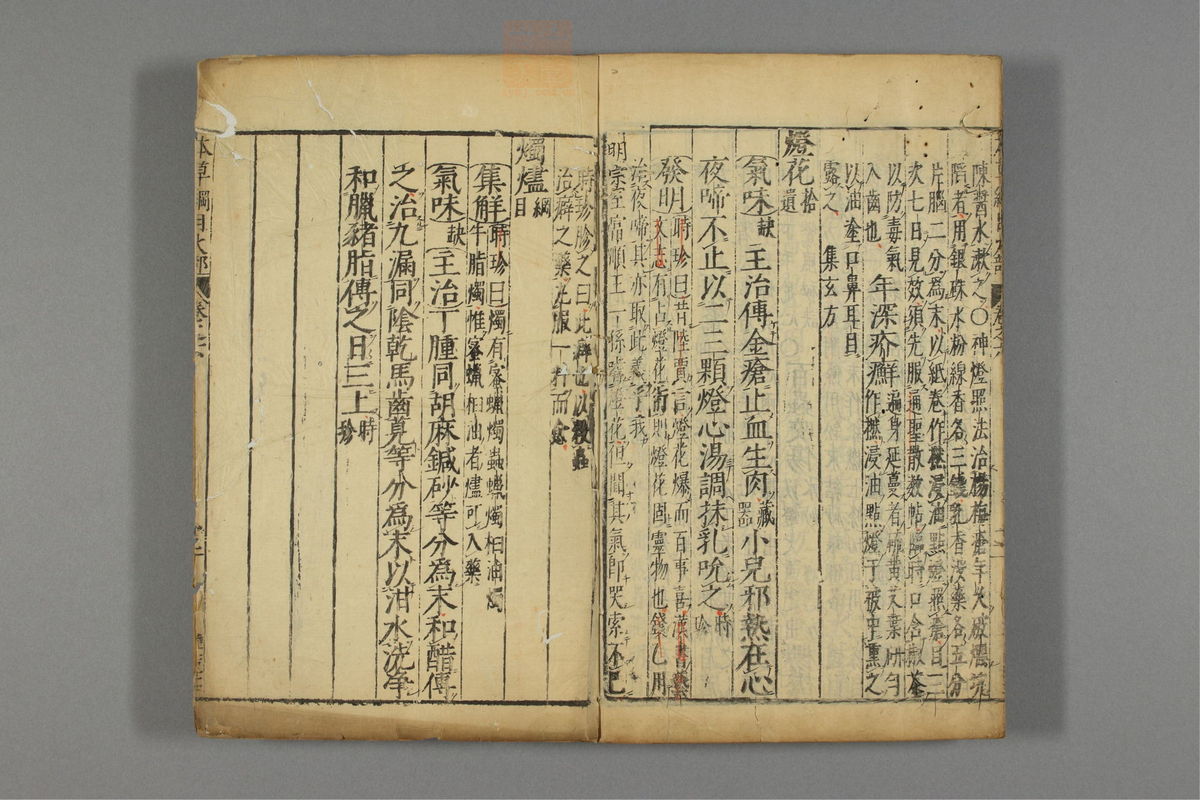 陳醬水漱之〇神燈照法治楊梅瘡年久破爛坑
陷者用銀硃水粉線香各三錢乳香没藥各五分
片腦二分為末以紙卷作撚浸油點燈照瘡日三
次七日見效須先服通聖散數帖臨時口含椒茶
以防毒氣
入齒也
年深疥癬遍身延蔓者硫黃艾葉研勻
作撚浸油點燈于被中熏之
以油塗口鼻耳目
露之
集玄方
燈花拾遺
氣味缺主治傅金瘡止血生肉藏器小兒邪熱在心
夜啼不止以二三顆燈心湯調抹乳吮之時珍
發明時珍曰昔陸賈言燈花爆而百事喜漢書藝
文志有占燈花術則燈花固靈物也錢乙用
治夜啼其亦取此義乎我
明宗室富順王一孫嗜燈花但聞其氣即哭索不已
時珍胗之曰此癖也以殺蟲
治癖之藥丸服一料而愈
燭燼綱目
集解時珍曰燭有蜜蠟燭蟲蠟燭柏油燭
牛脂燭惟蜜蠟柏油者燼可入藥
氣味缺主治丁腫同胡麻鍼砂等分為末和醋傅
之治九漏同陰乾馬齒莧等分為末以泔水洗淨
和臘豬脂傅之日三上時珍
本草綱目火部